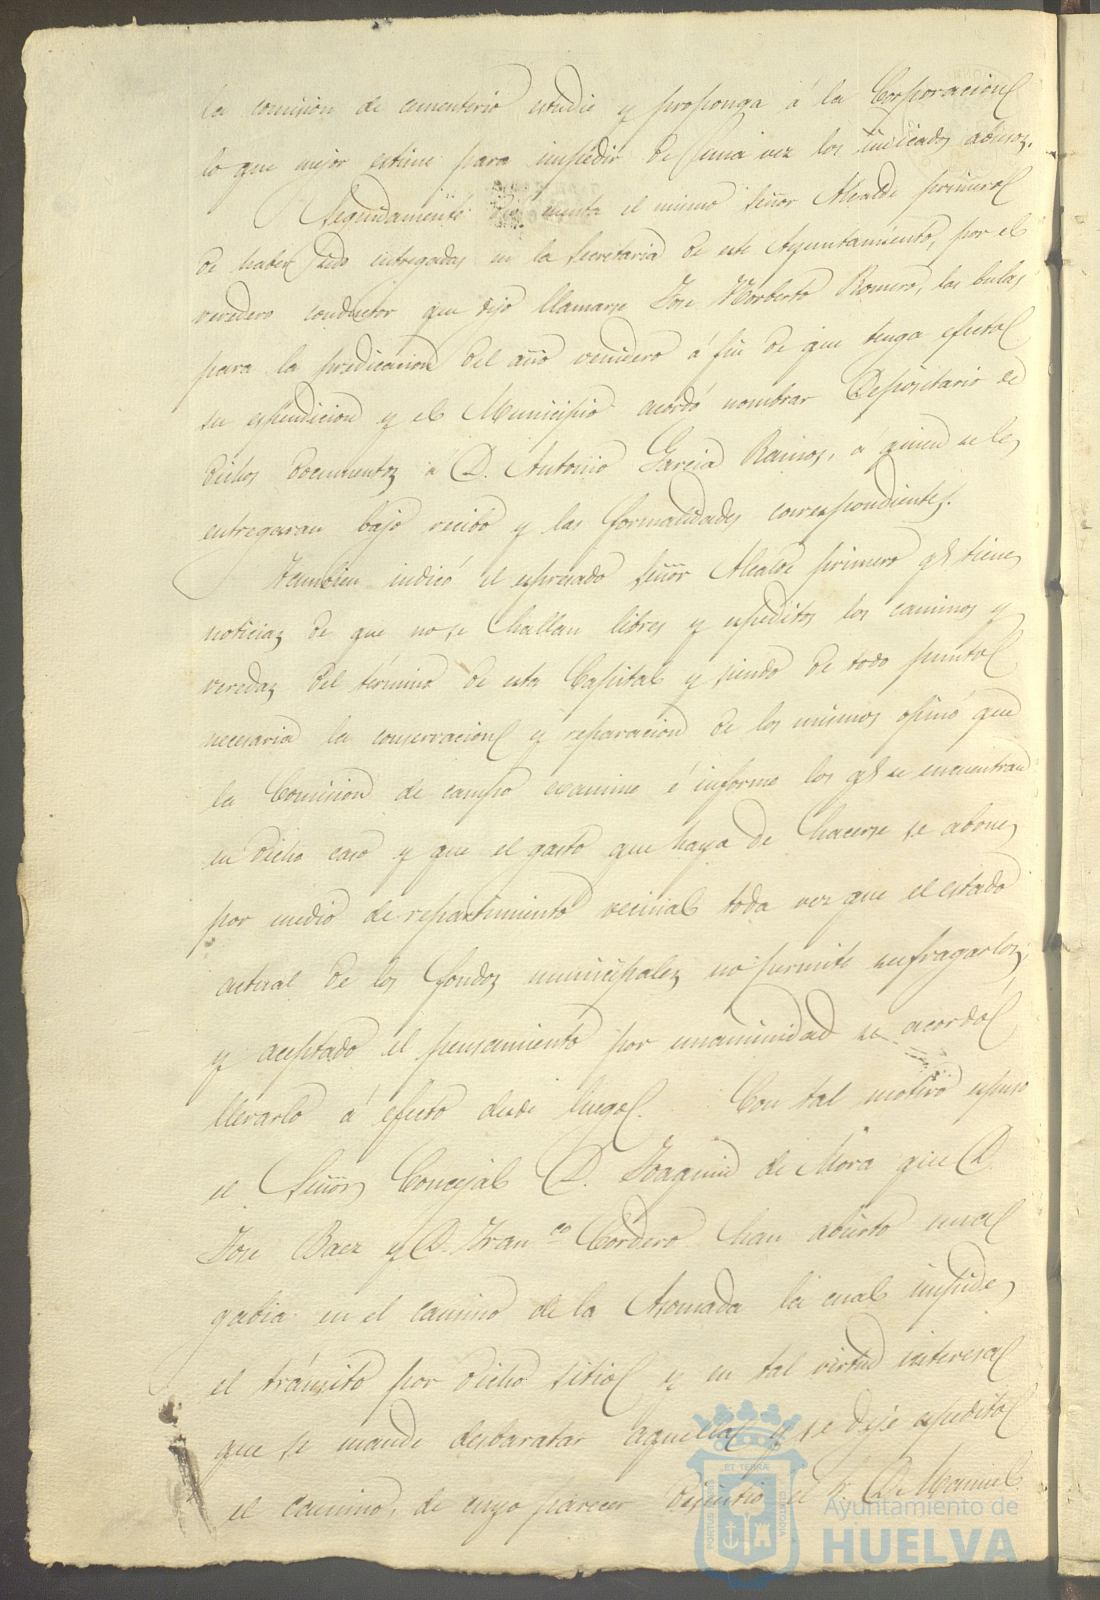 la comision de cementerio estudie y proponga á la Corporacion
lo que mejor estime para impedir de una vez los indicados abusos.
Seguidamente dió cuenta el mismo Señor Alcalde primero
de haber sido entregadas en la Secretaria de este Ayuntamiento, por el
veredero conductor que dijo llamarse Jose Norberto Romero, las bulas
para la predicacion del año venidero á fin de que tenga efecto
su espendicion y el Municipio acordó nombrar Depositario de
dichos documentos á D. Antonio Garcia Ramos, á quien se le
entregaran bajo recibo y las formalidades correspondientes.
Tambien indicó el espresado Señor Alcalde primero qe tiene
noticias de que no se hallan libres y espeditos los caminos y
veredas del término de esta Capital y siendo de todo punto
necesaria la conservacion y reparacion de los mismos opinó que
la Comision de campo examine é informe los qe se encuentran
en dicho caso y que el gasto que haya de hacerse se abone
por medio de repartimiento vecinal toda vez que el estado
actual de los fondos municipales no permite sufragarlos;
y aceptado el pensamiento por unanimidad se acordó
llevarlo á efecto desde luego. Con tal motivo espuso
el Señor Concejal D. Joaquin de Mora que D.
Jose Baez y D. Franco Cordero han abierto una
gabia en el camino de la Asomada la cual impide
el tránsito por dicho sitio y en tal virtud interesa
que se mande desbaratar aquella y se deje espedito
el camino, de cuyo parecer disintió el S. D. Manuel
PORTUS MARIS
ET TERRÆ
CUSTODIA
Ayuntamiento de
HUELVA